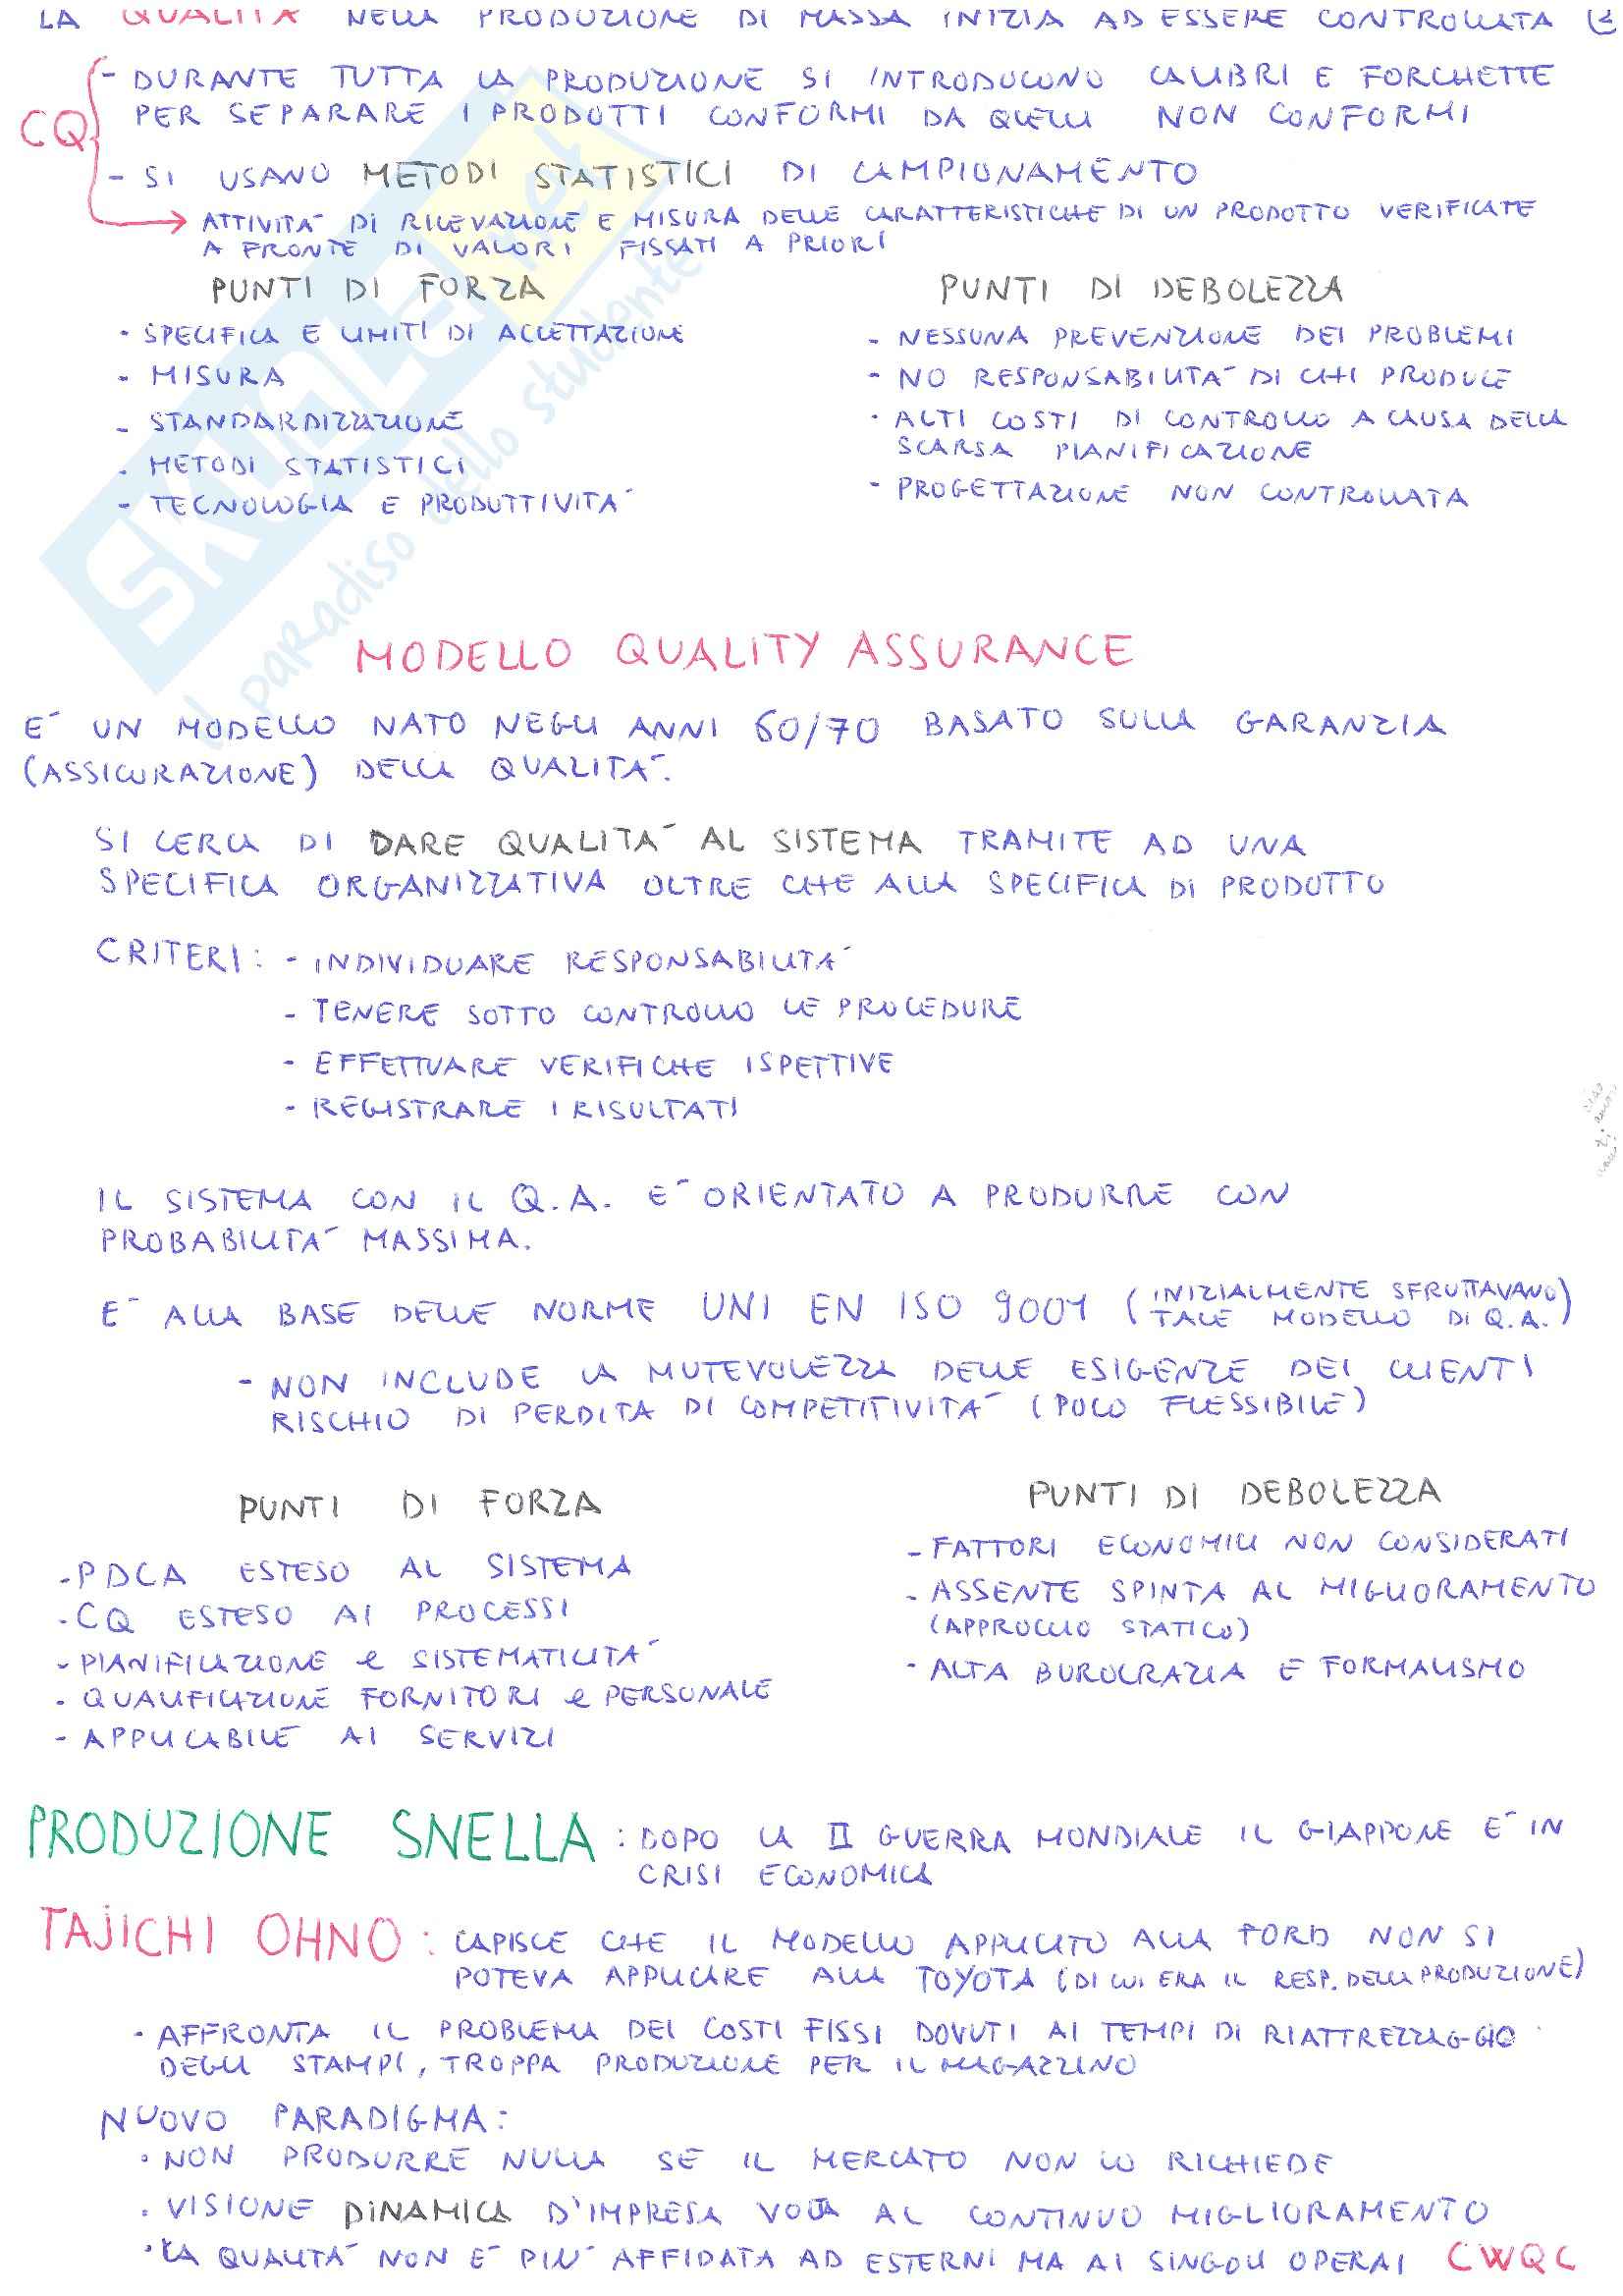 LA QUALITÀ NELLA PRODUZIONE DI MASSA INIZIA AD ESSERE CONTROLLATA
CQ
- DURANTE TUTTA LA PRODUZIONE SI INTRODUCONO CALIBRI E FORCHETTE
PER SEPARARE I PRODOTTI CONFORMI DA QUELLI NON CONFORMI
- SI USANO METODI STATISTICI DI CAMPIONAMENTO
→ ATTIVITÀ DI RILEVAZIONE E MISURA DELLE CARATTERISTICHE DI UN PRODOTTO VERIFICATE
A FRONTE DI VALORI FISSATI A PRIORI
PUNTI DI FORZA
- SPECIFICA E LIMITI DI ACCETTAZIONE
- MISURA
- STANDARDIZZAZIONE
- METODI STATISTICI
- TECNOLOGIA E PRODUTTIVITÀ
PUNTI DI DEBOLEZZA
- NESSUNA PREVENZIONE DEI PROBLEMI
- NO RESPONSABILITÀ DI CHI PRODUCE
- ALTI COSTI DI CONTROLLO A CAUSA DELLA
SCARSA PIANIFICAZIONE
- PROGETTAZIONE NON CONTROLLATA
SKUOLA.net
Il paradiso dello studente
MODELLO QUALITY ASSURANCE
E' UN MODELLO NATO NEGLI ANNI 60/70 BASATO SULLA GARANZIA
(ASSICURAZIONE) DELLA QUALITÀ.
SI CERCA DI DARE QUALITÀ AL SISTEMA TRAMITE AD UNA
SPECIFICA ORGANIZZATIVA OLTRE CHE ALLA SPECIFICA DI PRODOTTO
CRITERI: - INDIVIDUARE RESPONSABILITÀ
- TENERE SOTTO CONTROLLO LE PROCEDURE
- EFFETTUARE VERIFICHE ISPETTIVE
- REGISTRARE I RISULTATI
IL SISTEMA CON IL Q.A. E' ORIENTATO A PRODURRE CON
PROBABILITÀ MASSIMA.
E' ALLA BASE DELLE NORME UNI EN ISO 9001 (INIZIALMENTE SFRUTTAVANO
TALE MODELLO DI Q.A.)
- NON INCLUDE LA MUTEVOLEZZA DELLE ESIGENZE DEI CLIENTI
RISCHIO DI PERDITA DI COMPETITIVITÀ (POCO FLESSIBILE)
PUNTI DI FORZA
- PDCA ESTESO AL SISTEMA
- CQ ESTESO AI PROCESSI
- PIANIFICAZIONE e SISTEMATICITÀ
- QUALIFICAZIONE FORNITORI e PERSONALE
- APPLICABILE AI SERVIZI
PUNTI DI DEBOLEZZA
- FATTORI ECONOMICI NON CONSIDERATI
- ASSENTE SPINTA AL MIGLIORAMENTO
(APPROCCIO STATICO)
- ALTA BUROCRAZIA E FORMALISMO
PRODUZIONE SNELLA : DOPO LA II GUERRA MONDIALE IL GIAPPONE E' IN
CRISI ECONOMICA
TAJICHI OHNO : CAPISCE CHE IL MODELLO APPLICATO ALLA FORD NON SI
POTEVA APPLICARE ALLA TOYOTA (DI CUI ERA IL RESP. DELLA PRODUZIONE)
- AFFRONTA IL PROBLEMA DEI COSTI FISSI DOVUTI AI TEMPI DI RIATTREZZAGGIO
DEGLI STAMPI, TROPPA PRODUZIONE PER IL MAGAZZINO
NUOVO PARADIGMA:
• NON PRODURRE NULLA SE IL MERCATO NON LO RICHIEDE
• VISIONE DINAMICA D'IMPRESA VOLTA AL CONTINUO MIGLIORAMENTO
• LA QUALITÀ NON E' PIU' AFFIDATA AD ESTERNI MA AI SINGOLI OPERAI CWQC